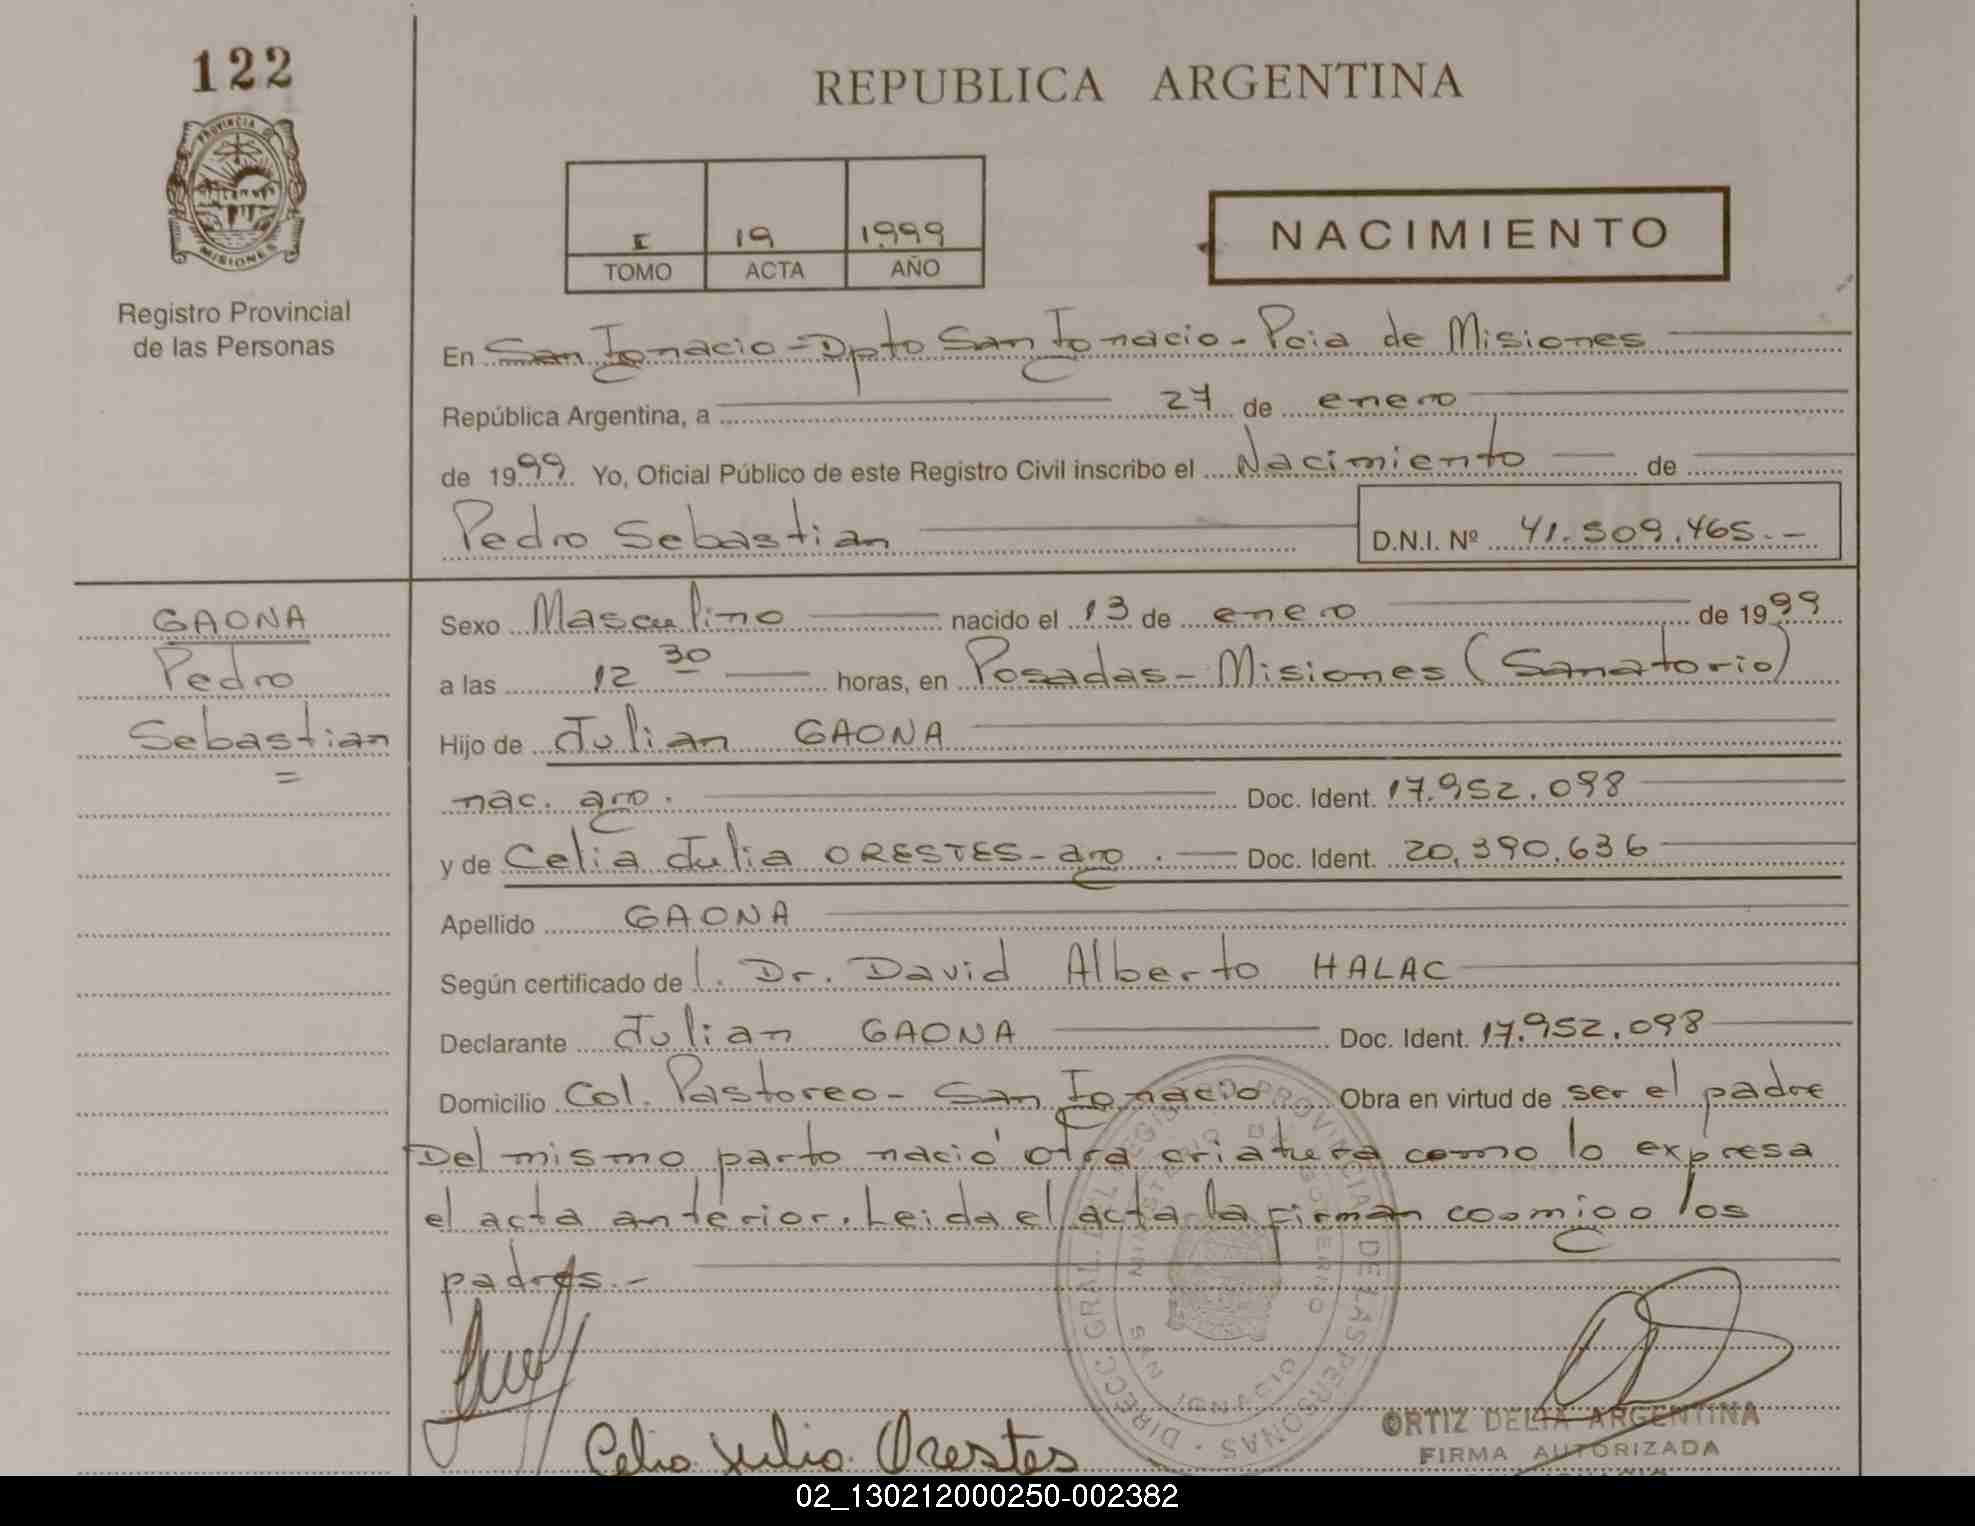 122
PROVINCIA DE
MISIONES
Registro Provincial
de las Personas
REPUBLICA ARGENTINA
I 19 1999
TOMO ACTA AÑO
NACIMIENTO
En San Ignacio - Dpto San Ignacio - Pcia de Misiones
República Argentina, a 27 de enero
de 1999 Yo, Oficial Público de este Registro Civil inscribo el Nacimiento de
Pedro Sebastian
D.N.I. Nº 41.509.465.-
GAONA
Pedro
Sebastian
=
Sexo Masculino nacido el 13 de enero de 1999
a las 12 30 horas, en Posadas - Misiones (Sanatorio)
Hijo de Julian GAONA
nac. arg. Doc. Ident. 17.952.098
y de Celia Julia ORESTES - arg. Doc. Ident. 20.390.636
Apellido GAONA
Según certificado de l. Dr. David Alberto HALAC
Declarante Julian GAONA Doc. Ident. 17.952.098
Domicilio Col. Pastoreo - San Ignacio Obra en virtud de ser el padre
Del mismo parto nació otra criatura como lo expresa
el acta anterior. Leida el acta la firman conmigo los
padres.-
DIRECC. GRAL. DEL REGISTRO PROVINCIAL DE LAS PERSONAS
MINISTERIO DE GOBIERNO
SAN IGNACIO
Celia Julia Orestes
ORTIZ DELIA ARGENTINA
FIRMA AUTORIZADA
02_130212000250-002382